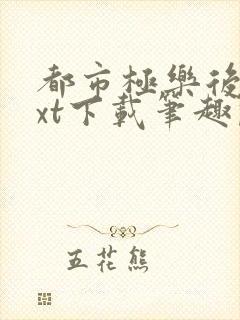 都市極樂後
xt下載筆趣
五花熊